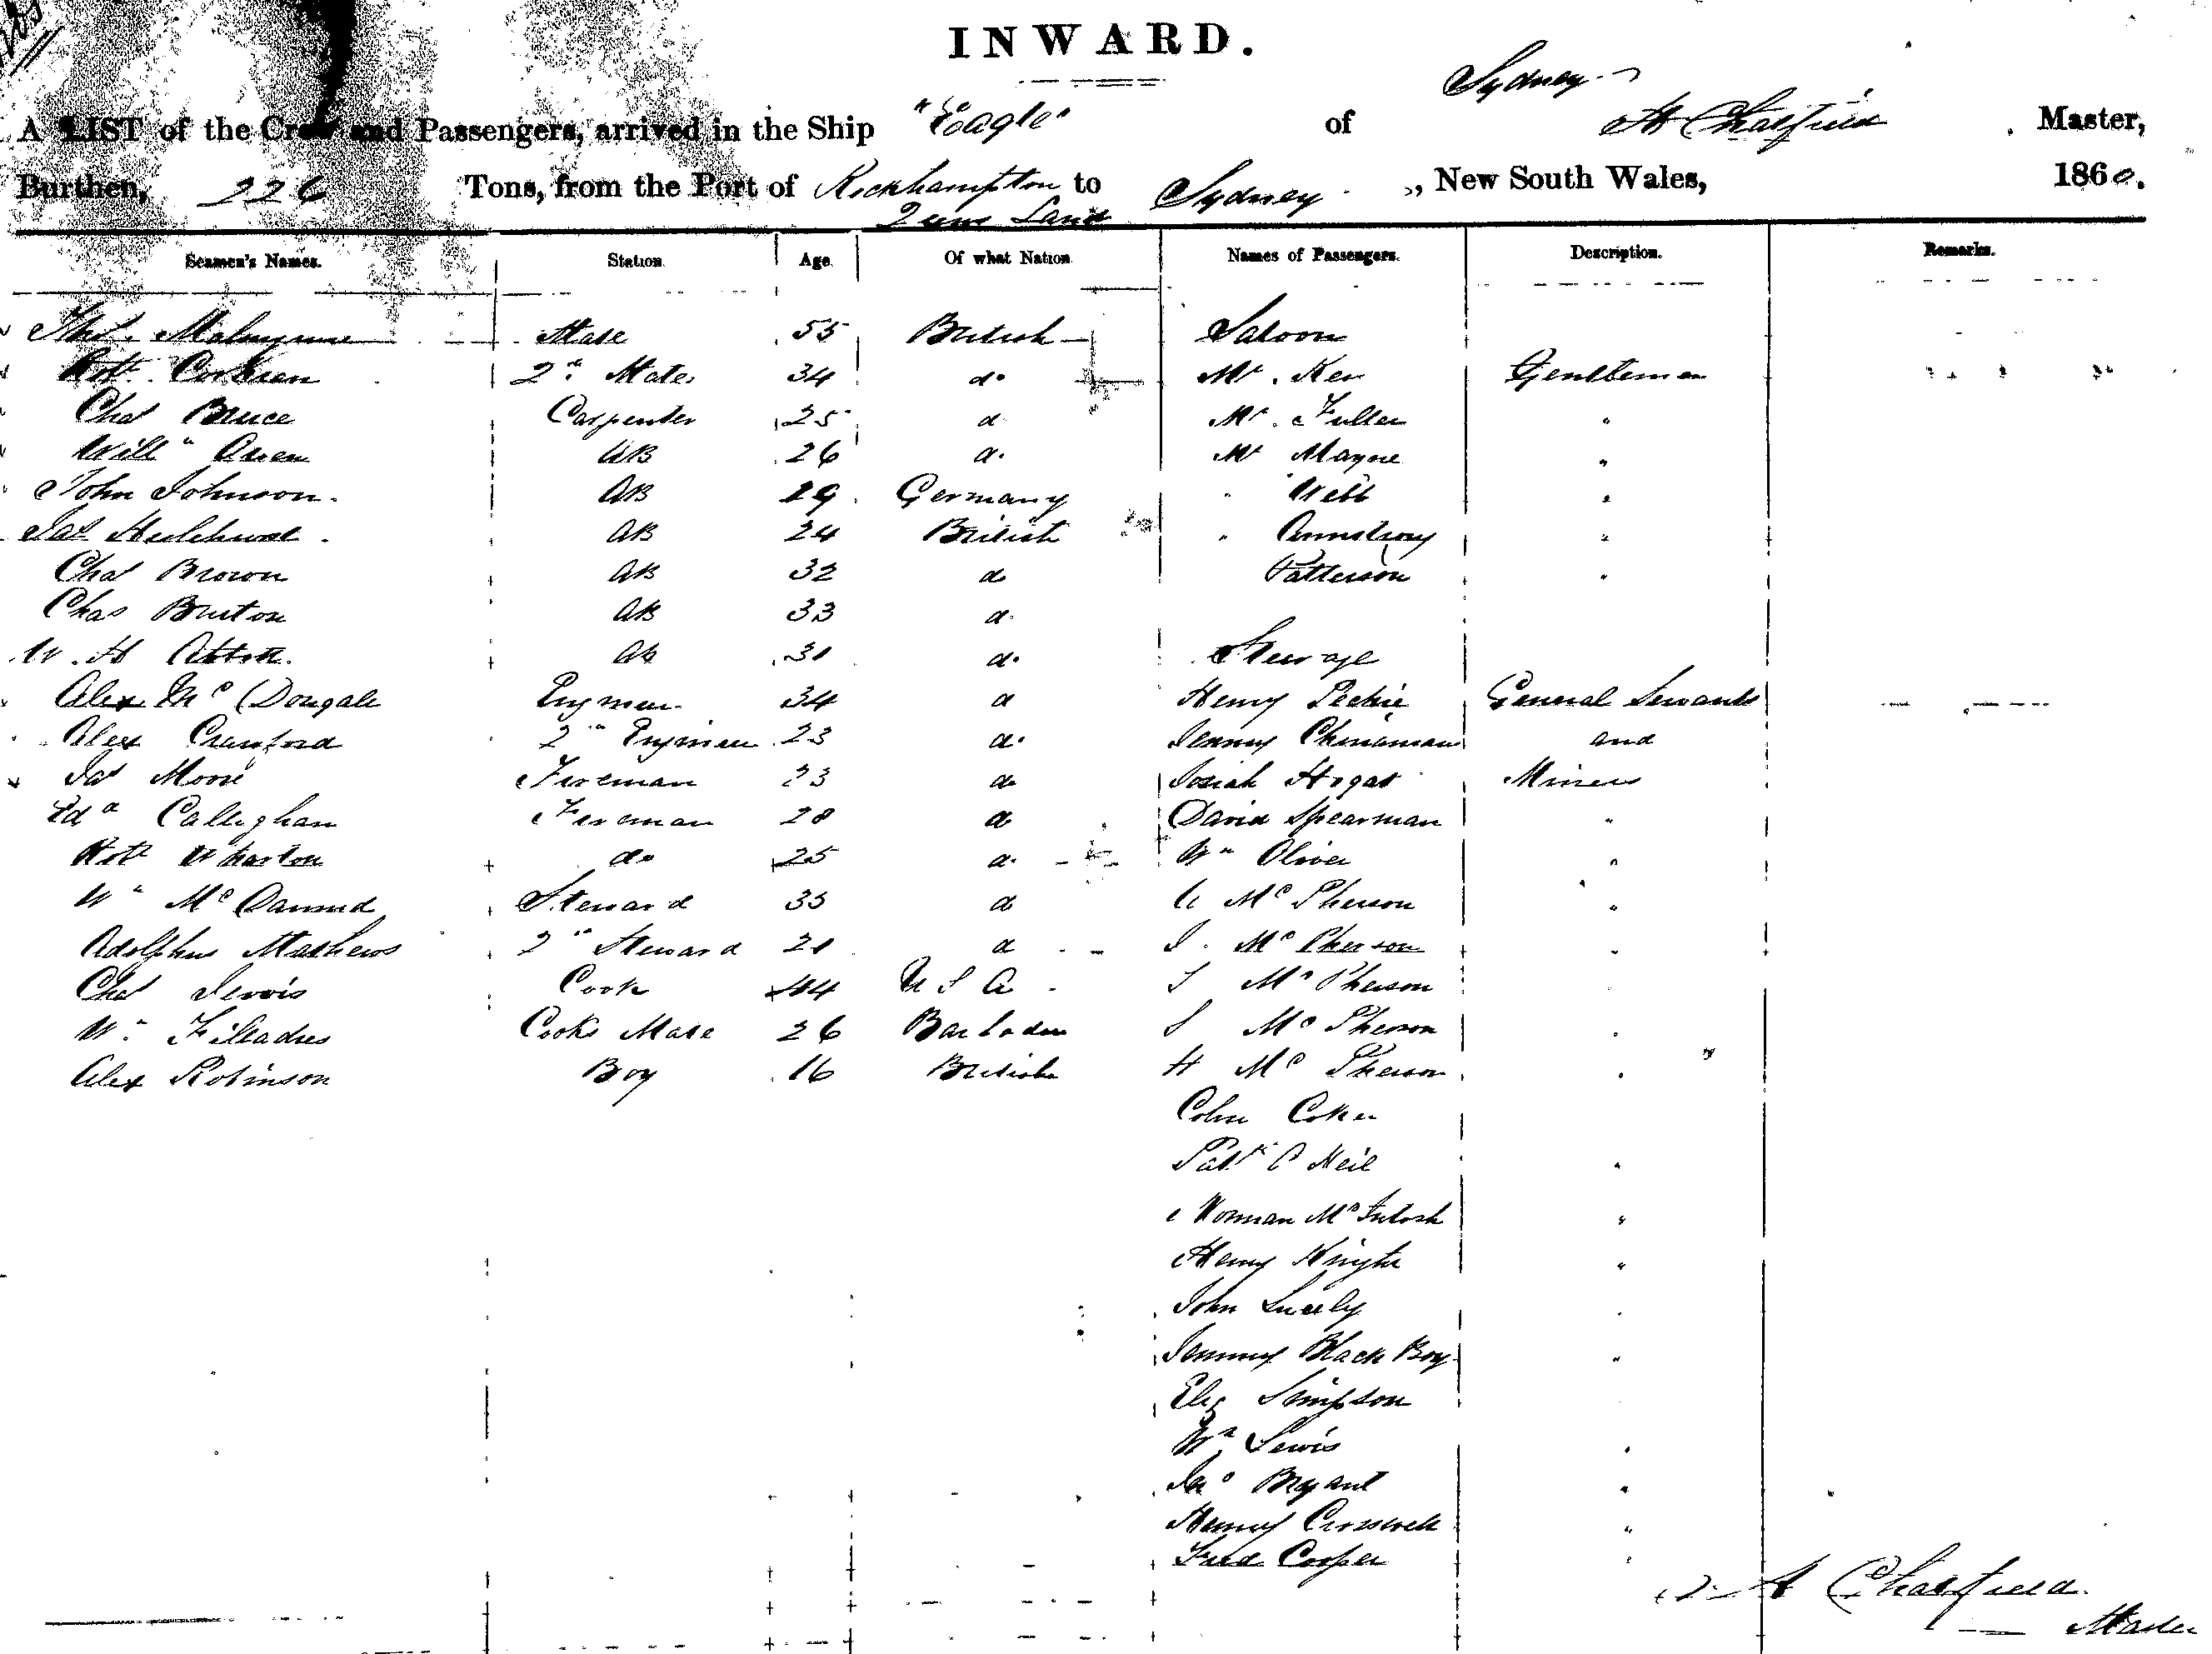 INWARD.
Sydney
A LIST of the Crew and Passengers, arrived in the Ship "Eagle" of A Chatfield, Master,
Burthen, 226 Tons, from the Port of Rockhampton to Sydney, New South Wales, 1860.
Queens Land
Seamen's Names. Station. Age. Of what Nation. Names of Passengers. Description. Remarks.
Mate 55 British Saloon
Robt Corkran 2nd Mate 34 do Mr. Ker Gentlemen
Chas Bruce Carpenter 25 do Mr. Fuller "
Willm Owen AB 26 do Mr Mayne "
John Johnson AB 29 Germany " Webb "
Jas AB 24 British " Armstrong "
Chas Brown AB 32 do Patterson "
Chas Burton AB 33 do
W. H Abbott AB 31 do Steerage
Alex McDougale Engineer 34 do Henry General Servants
Alex Crawford 2nd Engineer 23 do Jemmy Chinaman and
Jas Moore Fireman 23 do Josiah Miners
Edd Calleghan Fireman 28 do David Spearman "
Robt Wharton do 25 do Wm Oliver "
Wm Mc Steward 35 do Mc Pherson "
Adolphus Mathews 2nd Steward 21 do J. Mc Pherson "
Chas Cook 44 U S A J Mc Pherson "
Wm Cooks Mate 26 Barbados J Mc Pherson "
Alex Robinson Boy 16 British H Mc Pherson "
Colin Coker
Patk O Neil "
Norman McIntosh "
Henry Knight "
John "
Jemmy Black Boy "
Eliz Simpson
Wm Lewis "
Jno Bryant "
Henry Crosswell "
Fred Cooper "
A Chatfield
Master